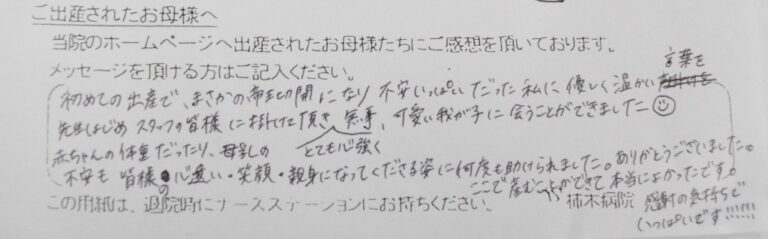 ご出産されたお母様へ
当院のホームページへ出産されたお母様たちにご感想を頂いております。
メッセージを頂ける方はご記入ください。
初めての出産で、まさかの帝王切開になり 不安いっぱいだった私に 優しく温かい 言葉を
先生はじめ スタッフの皆様に掛けて頂き 無事、可愛い我が子に会うことができました
赤ちゃんの体重だったり、母乳の とても心強く
不安も 皆様の心遣い・笑顔・親身になってくださる姿に何度も助けられました。ありがとうございました。
ここで産むことができて本当によかったです。
この用紙は、退院時にナースステーションにお持ちください。 柿木病院 感謝の気持ちで
いっぱいです!!!!!!